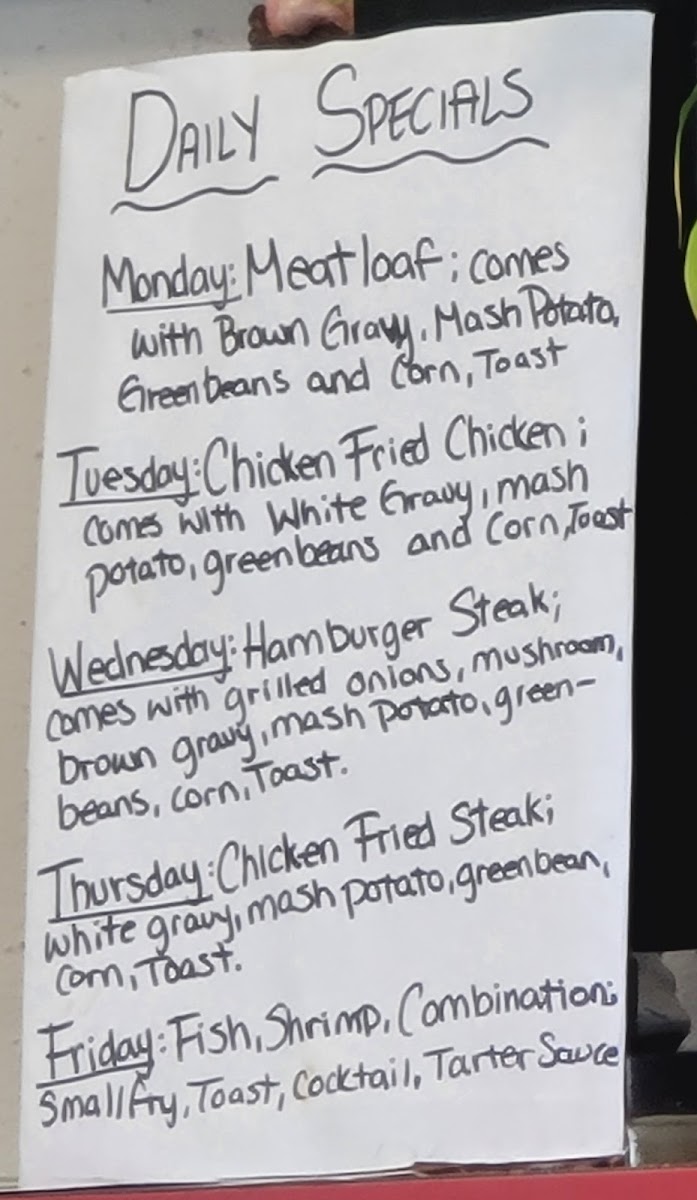 DAILY SPECIALS
Monday: Meatloaf; comes
with Brown Gravy, Mash Potato,
Greenbeans and Corn, Toast
Tuesday: Chicken Fried Chicken;
comes with White Gravy, mash
potato, greenbeans and Corn, Toast
Wednesday: Hamburger Steak;
comes with grilled onions, mushroom,
brown gravy, mash potato, green-
beans, corn, Toast.
Thursday: Chicken Fried Steak;
white gravy, mash potato, greenbean,
corn, Toast.
Friday: Fish, Shrimp, Combination;
Small fry, Toast, Cocktail, Tarter Sauce